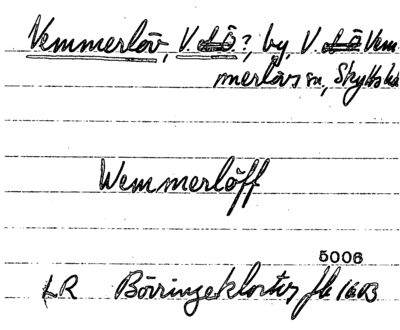 Vemmerlöv, V. ?, by, V Vem
merlövs sn, Skytts hä
Wemmerlöff
5006
LR Börringekloster jb 1603